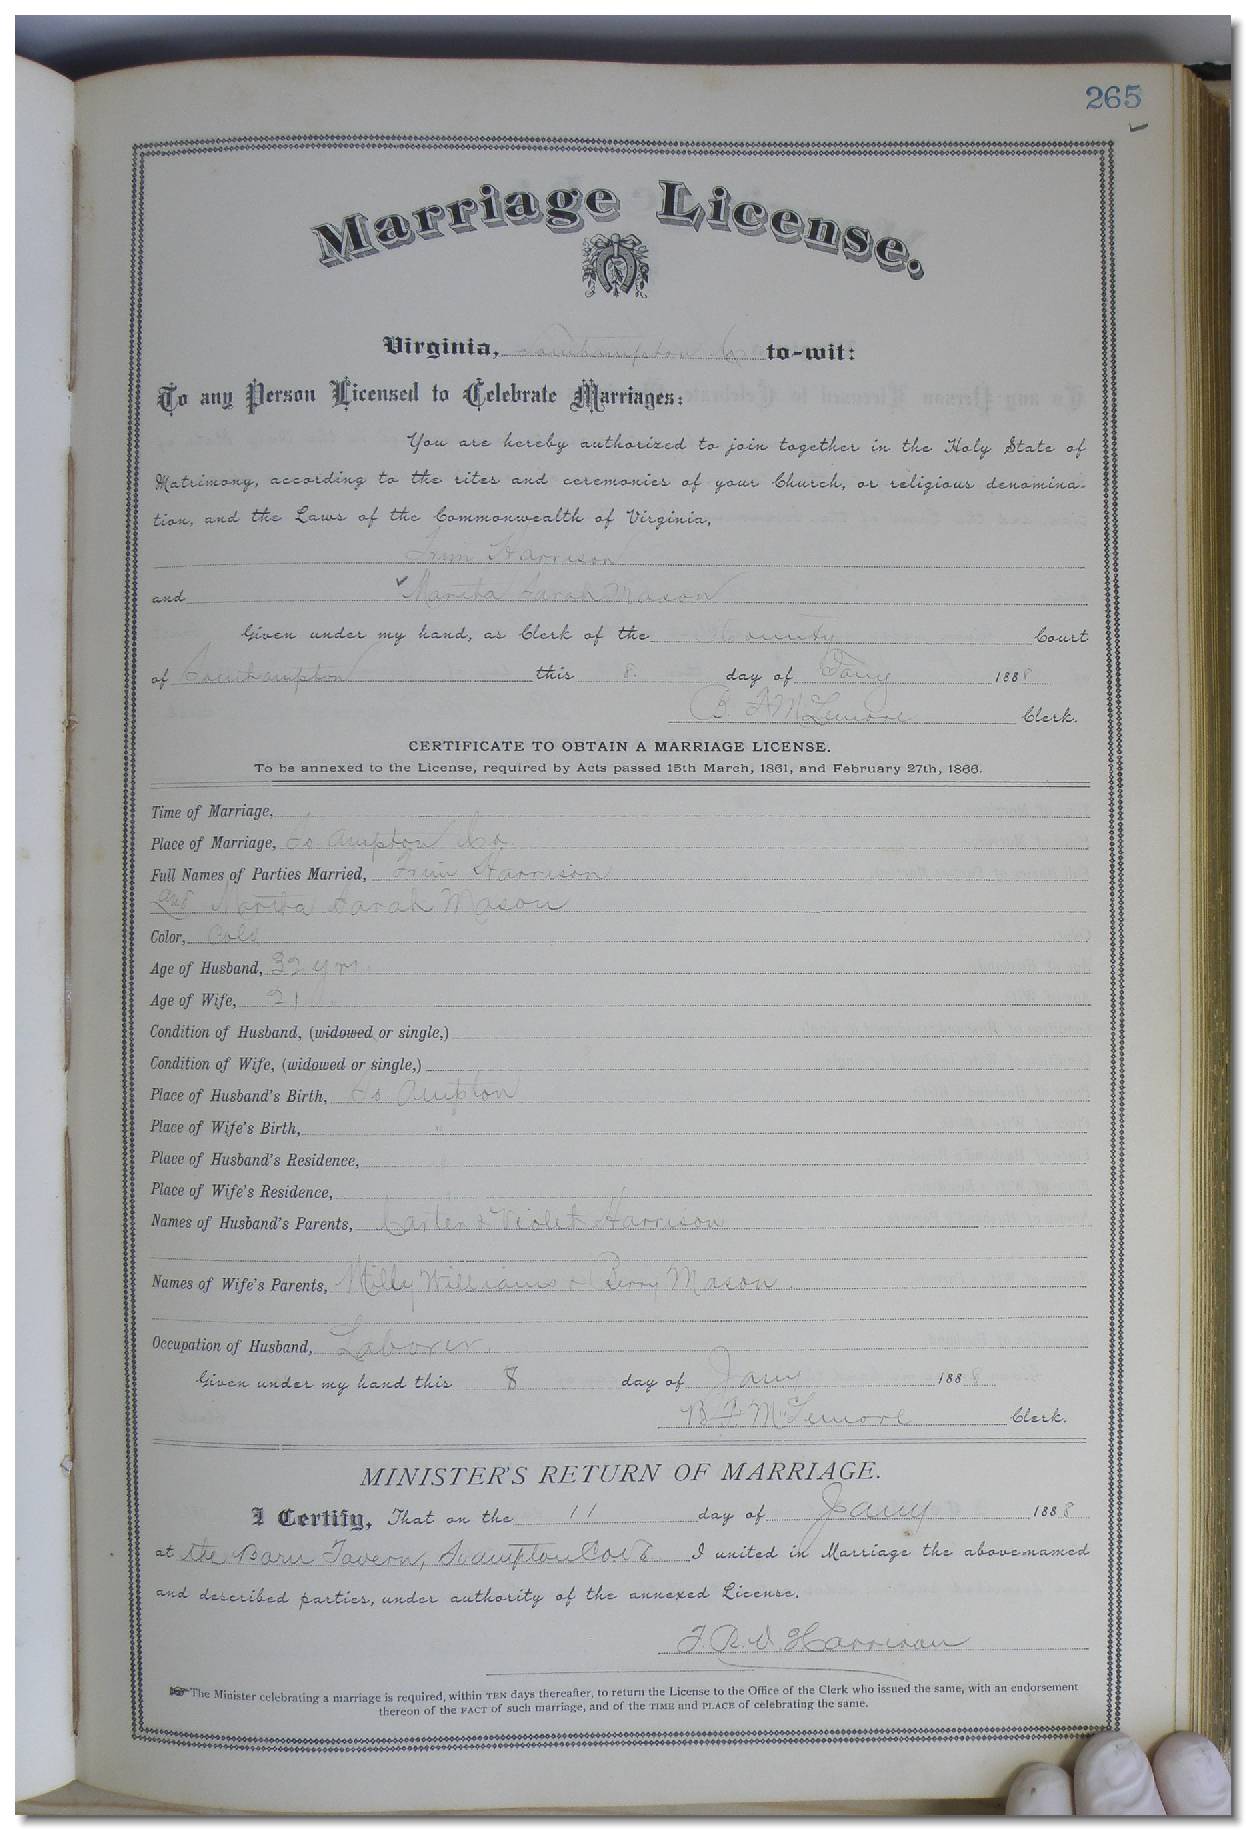 265
Marriage License.
Virginia, Southampton Co to-wit:
To any Person Licensed to Celebrate Marriages:
You are hereby authorized to join together in the Holy State of
Matrimony, according to the rites and ceremonies of your Church, or religious denomina-
tion, and the Laws of the Commonwealth of Virginia,
Harrison
and Sarah Mason
Given under my hand, as Clerk of the County Court
of Southampton this 8. day of Jany 1888
B. F. McLemore Clerk.
CERTIFICATE TO OBTAIN A MARRIAGE LICENSE.
To be annexed to the License, required by Acts passed 15th March, 1861, and February 27th, 1866.
Time of Marriage,
Place of Marriage, So ampton Co.
Full Names of Parties Married, Harrison
and Sarah Mason
Color, Cold
Age of Husband, 32 yrs.
Age of Wife, 21
Condition of Husband, (widowed or single,)
Condition of Wife, (widowed or single,)
Place of Husband's Birth, So Ampton
Place of Wife's Birth, "
Place of Husband's Residence,
Place of Wife's Residence,
Names of Husband's Parents, & Violet Harrison
Names of Wife's Parents, Milly Williams & Berry Mason.
Occupation of Husband, Laborer.
Given under my hand this 8 day of Jany 1888
B F McLemore Clerk.
MINISTER'S RETURN OF MARRIAGE.
I Certify, That on the 11 day of Jany 1888
at the Barn Tavern, I united in Marriage the above-named
and described parties, under authority of the annexed License.
Harrison
The Minister celebrating a marriage is required, within TEN days thereafter, to return the License to the Office of the Clerk who issued the same, with an endorsement
thereon of the FACT of such marriage, and of the TIME and PLACE of celebrating the same.